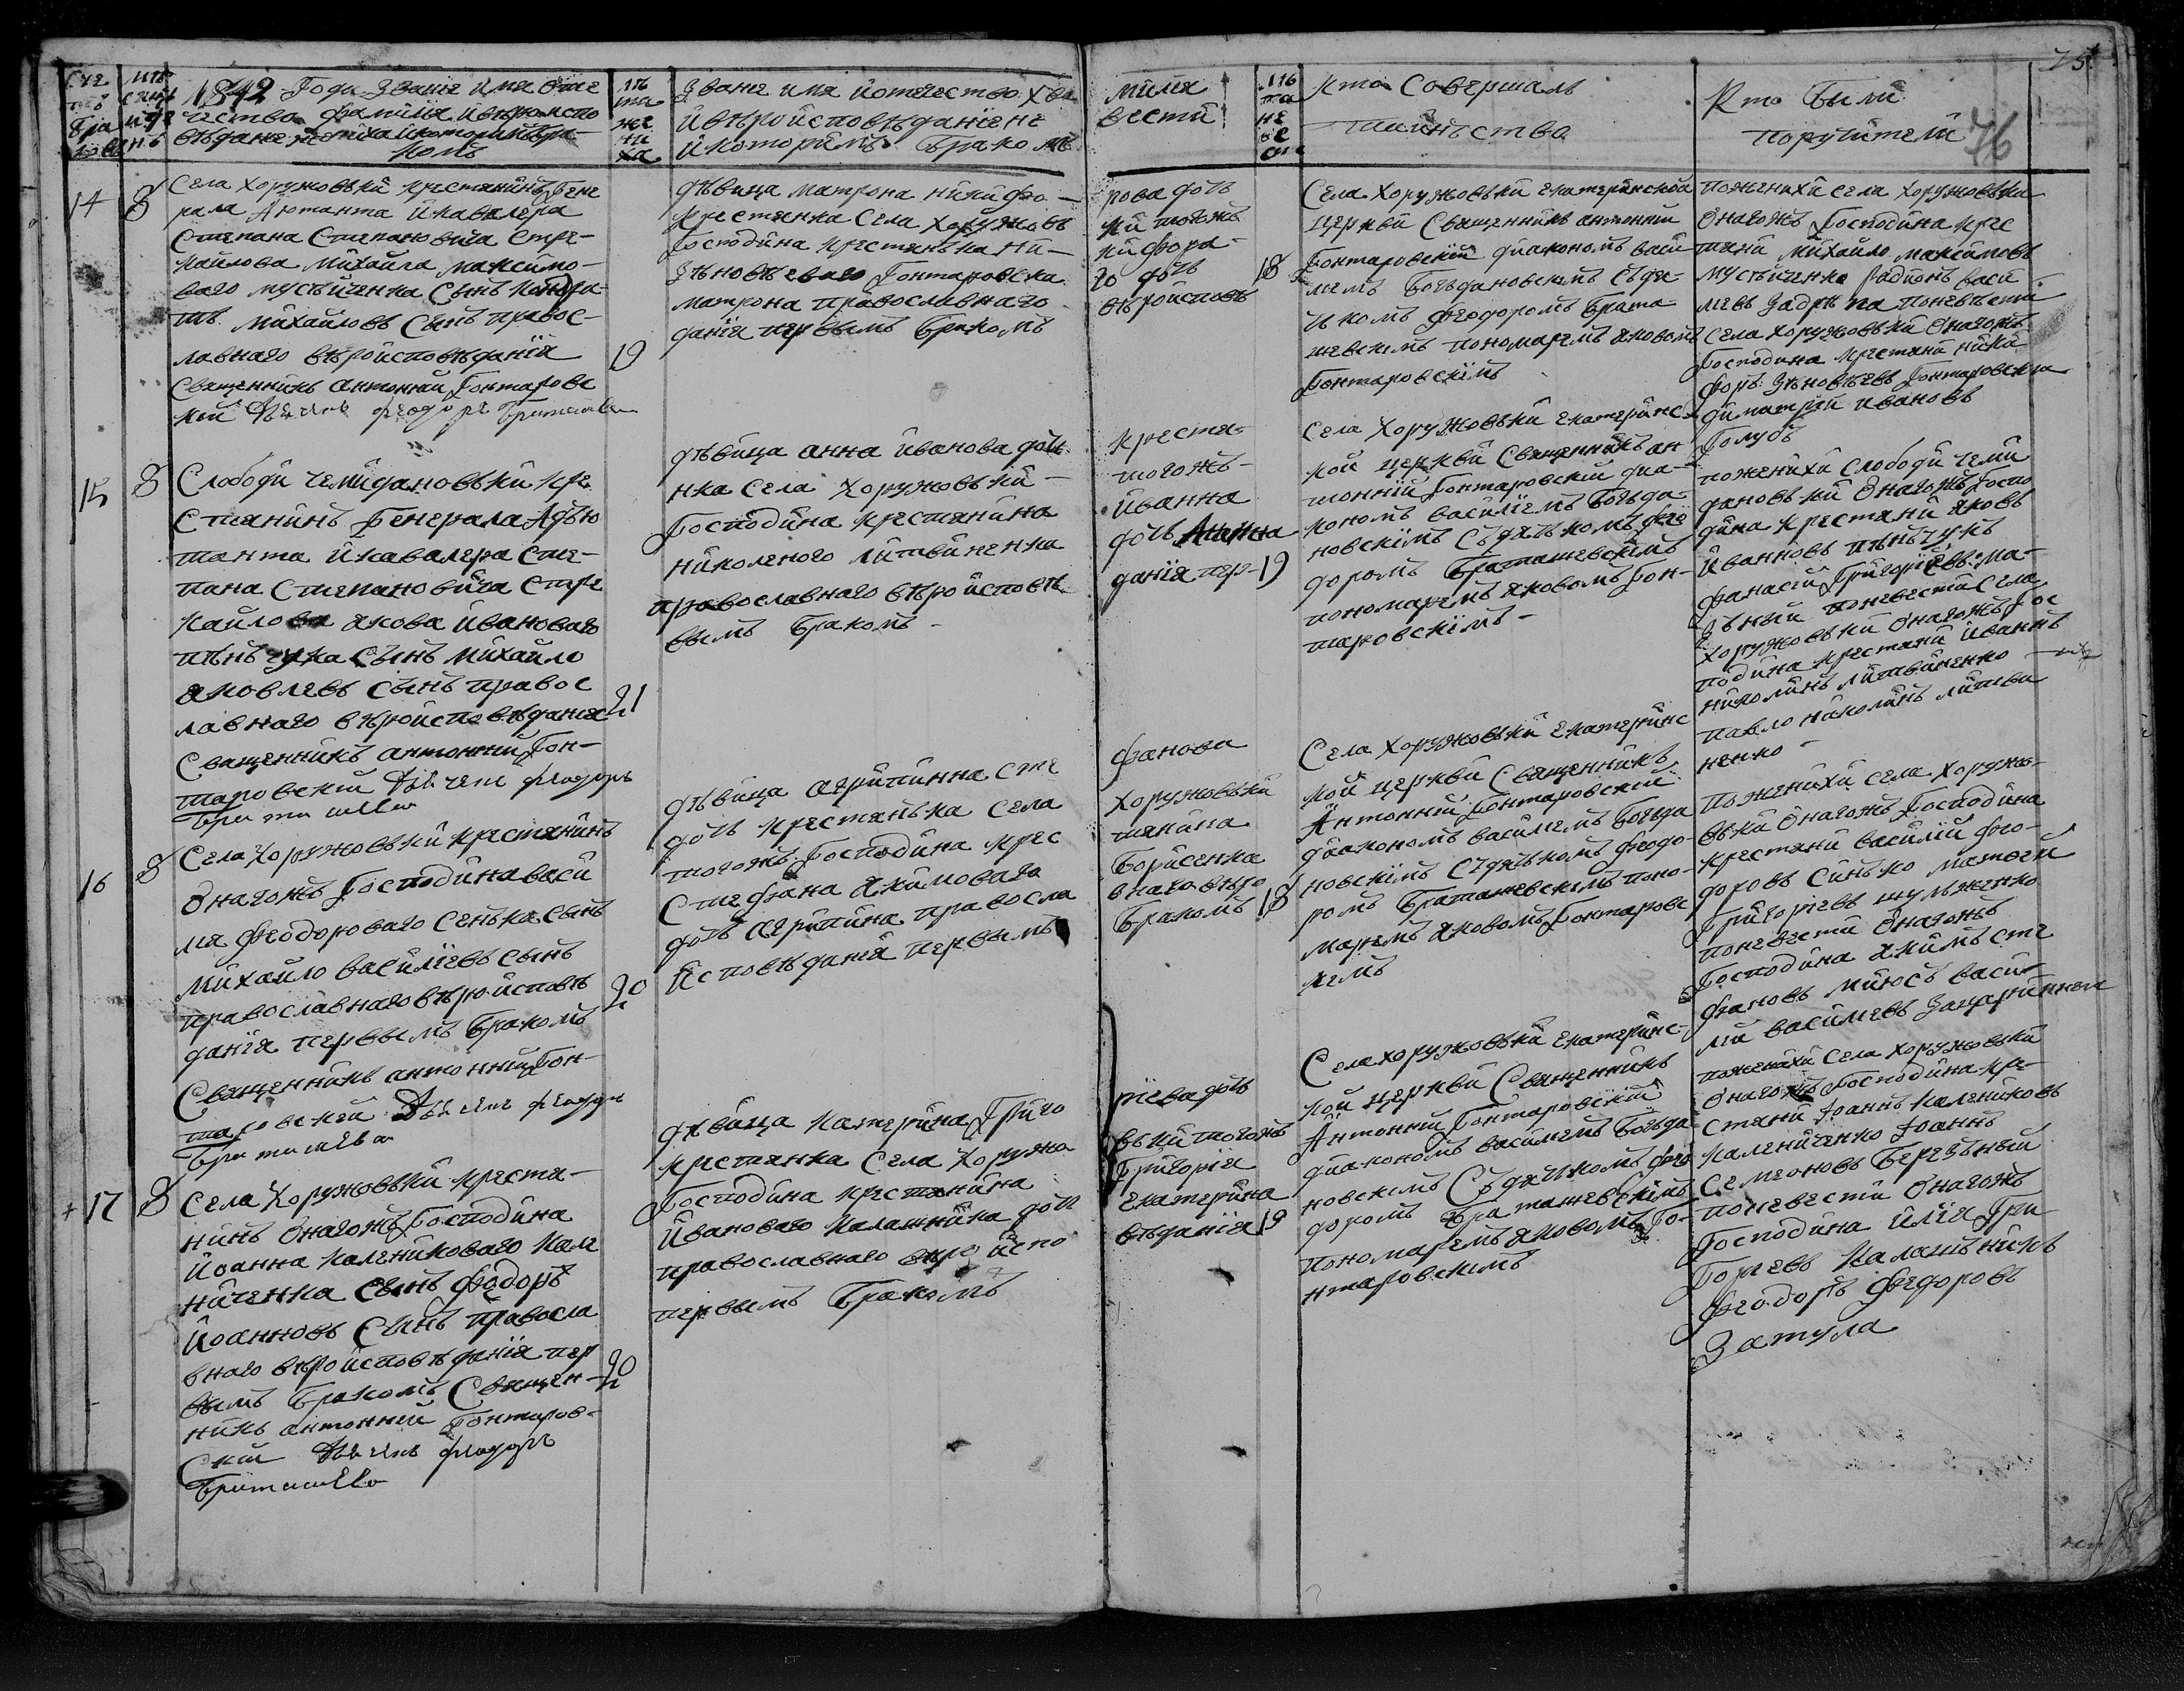 75.
76
1842 Года Званіе имя отче
чество фамилія и вѣроиспо
вѣдане жениха и которимъ бра
комъ
лѣ
та
же
ни
ха
Званіе имя и отчество
и вѣроисповѣданіе не
и которимъ бракомъ
милія
вести
лѣ
та
не
ве
сти
кто Совершалъ
таинство
Кто были
поручители
14
8
Села Хоружовъки крестянинъ Гене
рала Аютанта и кавалера
Степана Степановича Стре-
калова Михайла максимо-
ваго мусѣиченка Сынъ Кондра
тъ Михайловъ Сынъ правос-
лавнаго вѣроисповѣданія
Священникъ антонній Гонтаровс
кій Дьячекъ феодоръ
19
дѣвица матрона никифо-
крестянка Села Хоружовъ
Господина крестянина ни-
Зѣновѣеваго Гонтаровска
матрона православнаго
данія первымъ бракомъ
рова дочь
ки тогожъ
кифора-
го дочь
вѣроисповѣ
18
Села Хоружовъки екатеринской
церкви Священникъ антонній
Гонтаровскій диакономъ васи
лиемъ Богъдановскимъ Съ дя-
чкомъ феодоромъ Брата
шевскимъ пономаремъ яковомъ
Гонтаровскимъ
по женихи села хоружовъки
Онагожъ Господина крес
тяни михайло максимовъ
мусѣиченко радионъ васи
левъ по невѣсти
Села хоружовъки Онагожъ
Господина крестяни ники
форъ Зѣновѣевъ Гонтаровска
диматрій ивановъ
Голубъ
15
8
Слободи чемидановъки кре
стянинъ Генерала Адъю
танта и кавалера сте-
пана Степановича Стре
калова якова ивановаго
пѣнъчука Сынъ михайло
яковлевъ Сынъ правос
лавнаго вѣроисповѣдания
Священникъ антонній Гон-
таровскій Дьячекъ феодоръ
21
дѣвица анна иванова доч
нка Села Хоружовъки
Господина крестянина
николеного литвиненка
православнаго вѣроисповѣ
вымъ бракомъ
крестя-
тогожъ-
иванна
дочь Анна
данія пер-
19
Села Хоружовъки екатеринс
кой церкви Священникъ ан
тонній Гонтаровскій диа-
кономъ василіемъ Богъда
новскимъ Съ дячькомъ фео
доромъ Браташевскимъ
пономаремъ яковомъ Гон-
таровскимъ
по женихи Слободи чеми
дановъки Онагожъ Госпо
дина крестяни яковъ
ивановъ пѣнъчукъ
фанасій Григоріевъ ма-
зъный по невести Села
Хоружовъки Онагожъ Гос
подина крестяни иваннъ
николинъ литвиненко
павло николинъ литви
ненко
16
8
Села Хоружовъки крестянинъ
Онагожъ Господина васи
лия феодороваго Сенька Сынъ
Михайло василіевъ Сынъ
православнаго вѣроисповѣ
данія первымъ бракомъ
Священникъ антонній Гон-
таровскій Дьячекъ феодоръ
20
дѣвица агрипинна сте
дочь крестянька Села
тогожъ Господина крес
Стефана якимоваго
дочь агрипина правосла
исповѣданія первымъ
фанова
Хоружовъки
тянина
Борисенка
внаго вѣро
бракомъ
18
Села Хоружовъки екатеринс
кой церкви Священникъ
Антонній Гонтаровскій
диакономъ василиемъ Богъда
новскимъ Съ дячькомъ феодо-
ромъ Браташевскимъ поно-
маремъ яковомъ Гонтаровс
кимъ
По женихи села Хоружо-
въки Онагожъ Господина
крестяни василій фео-
доровъ Синько матвеи
Григориевъ шулженко
по невести Онагожъ
Господина якимъ сте
фановъ васи-
лій василиевъ
17
8
Села Хоружовъки крестя-
нинъ Онагожъ Господина
иоанна каленикового кале
ниченка Сынъ фодоръ
иоанновъ Сынъ правосла
внаго вѣроисповѣданія пер
вымъ бракомъ Священ-
никъ антонній Гонтаров-
скій Дьячекъ феодоръ
20
дѣвица катерина Григо
крестянка Села Хоружо
Господина крестянина
ивановаго калашника дочь
православнаго вѣро испо
первымъ бракомъ
ріева дочь
въки тогожъ
Григорія
екатерина
вѣданія
19
Села Хоружовъки екатеринс-
кой церкви Священникъ
Антонній Гонтаровскій
диакономъ василиемъ Богъда
новскимъ Съ дячькомъ фео
доромъ Браташевскимъ
пономаремъ яковомъ Го-
нтаровскимъ
по женихи Села Хоружовъки
Онагожъ Господина кре-
стяни Иоаннъ калениковъ
каленіченко Иоаннъ
Семеоновъ Березъный
по невести Онагожъ
Господина илія Гри
Гориевъ Калашъникъ
феодоръ федоровъ
Затула